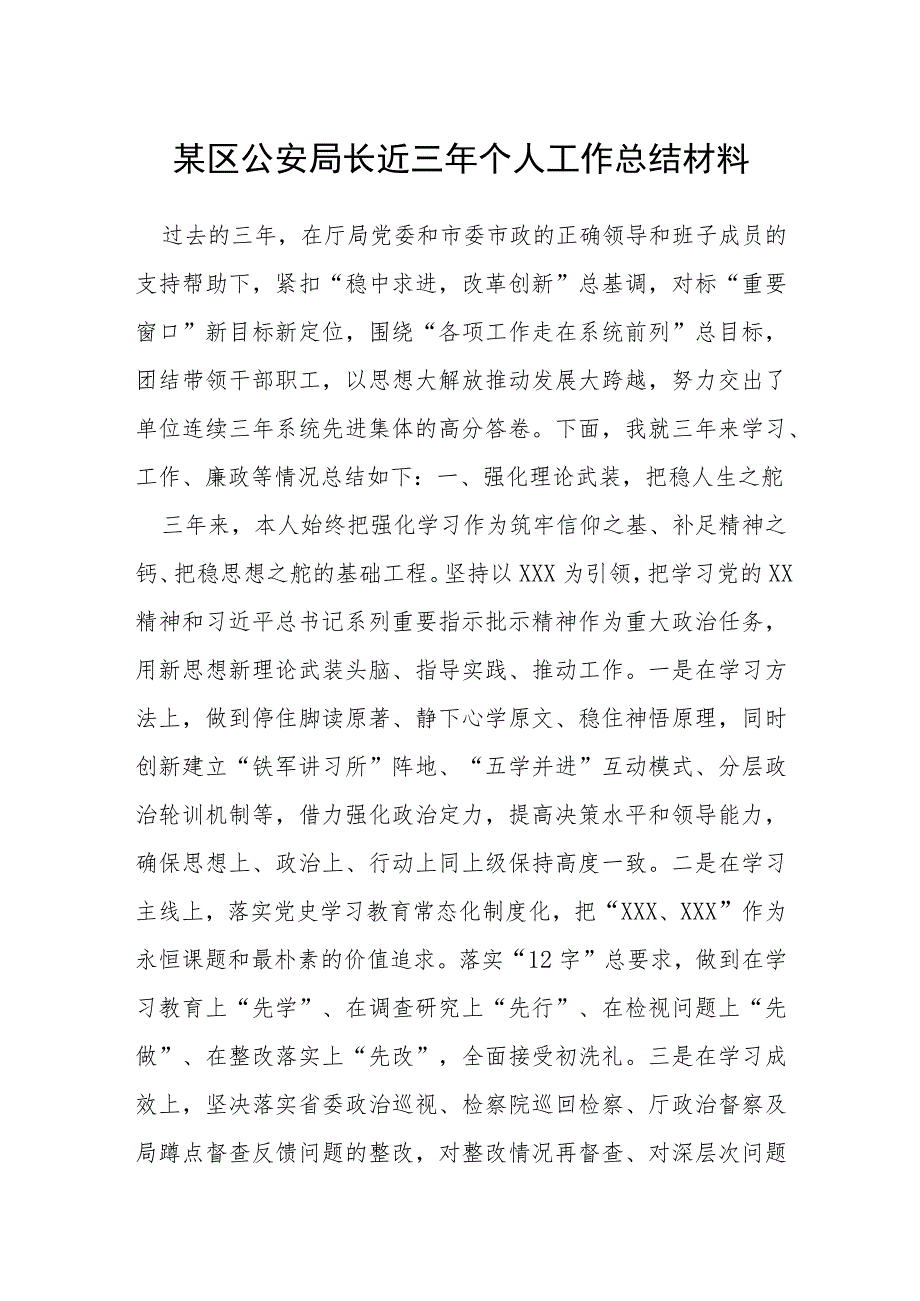 某区公安局长近三年个人工作总结材料
过去的三年，在厅局党委和市委市政的正确领导和班子成员的
支持帮助下，紧扣“稳中求进，改革创新”总基调，对标“重要
窗口”新目标新定位，围绕“各项工作走在系统前列”总目标，
团结带领干部职工，以思想大解放推动发展大跨越，努力交出了
单位连续三年系统先进集体的高分答卷。下面，我就三年来学习、
工作、廉政等情况总结如下：一、强化理论武装，把稳人生之舵
三年来，本人始终把强化学习作为筑牢信仰之基、补足精神之
钙、把稳思想之舵的基础工程。坚持以XXX为引领，把学习党的XX
精神和习近平总书记系列重要指示批示精神作为重大政治任务，
用新思想新理论武装头脑、指导实践、推动工作。一是在学习方
法上，做到停住脚读原著、静下心学原文、稳住神悟原理，同时
创新建立“铁军讲习所”阵地、“五学并进”互动模式、分层政
治轮训机制等，借力强化政治定力，提高决策水平和领导能力，
确保思想上、政治上、行动上同上级保持高度一致。二是在学习
主线上，落实党史学习教育常态化制度化，把“XXX、XXX”作为
永恒课题和最朴素的价值追求。落实“12字”总要求，做到在学
习教育上“先学”、在调查研究上“先行”、在检视问题上“先
做”、在整改落实上“先改”，全面接受初洗礼。三是在学习成
效上，坚决落实省委政治巡视、检察院巡回检察、厅政治督察及
局蹲点督查反馈问题的整改，对整改情况再督查、对深层次问题